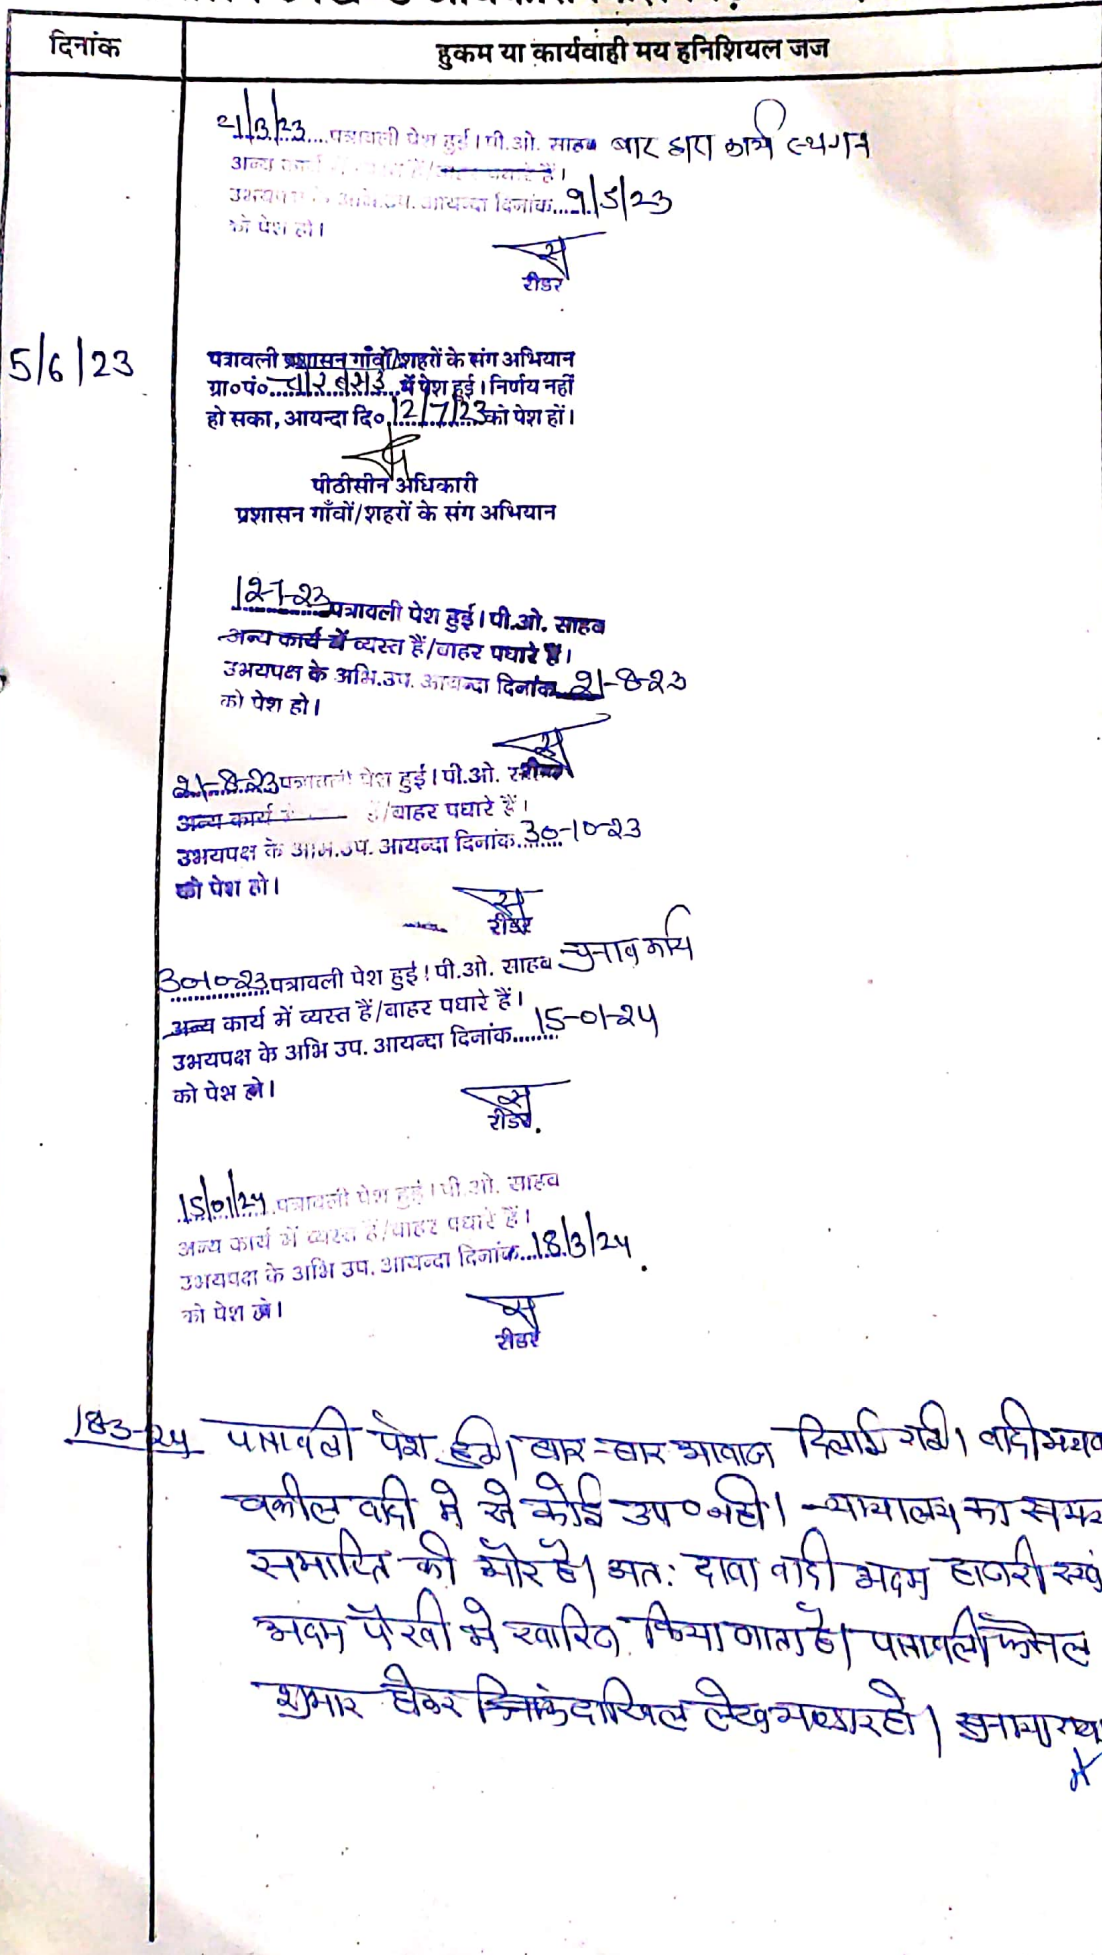 दिनांक
हुकम या कार्यवाही मय हनिशियल जज
21/3/23 पत्रावली पेश हुई। पी.ओ. साहब बार द्वारा कार्य स्थगन
अन्य कार्य में
उभयपक्ष के अभि.उप. आयन्दा दिनांक....9/5/23
को पेश हो।
रीडर
5/6/23
पत्रावली प्रशासन गाँवों/शहरों के संग अभियान
ग्रा०पं०.... में पेश हुई। निर्णय नहीं
हो सका, आयन्दा दि० 12/7/23 को पेश हों।
पीठीसीन अधिकारी
प्रशासन गाँवों/शहरों के संग अभियान
12-7-23 पत्रावली पेश हुई। पी.ओ. साहब
अन्य कार्य में व्यस्त हैं/बाहर पधारे हैं।
उभयपक्ष के अभि.उप. आयन्दा दिनांक 21-8-23
को पेश हो।
21-8-23 पत्रावली पेश हुई। पी.ओ.
अन्य कार्य हैं/बाहर पधारे हैं।
उभयपक्ष के अभि.उप. आयन्दा दिनांक 30-10-23
को पेश हो।
रीडर
30-10-23 पत्रावली पेश हुई। पी.ओ. साहब चुनाव कार्य
अन्य कार्य में व्यस्त हैं/बाहर पधारे हैं।
उभयपक्ष के अभि उप. आयन्दा दिनांक........15-01-24
को पेश हो।
रीडर
15/01/24 पत्रावली पेश हुई। पी.ओ. साहब
अन्य कार्य में व्यस्त हैं/बाहर पधारे हैं।
उभयपक्ष के अभि उप. आयन्दा दिनांक...18/3/24
को पेश हो।
रीडर
18-3-24 पत्रावली पेश हुई। बार-बार आवाज दिलाई गयी। वादी मय
वकील वादी मे से कोई उप० नही। न्यायालय का समय
समाप्ति की ओर है। अतः दावा वादी अदम हाजरी एवं
अदम पैरवी मे खारिज किया जाता है। पत्रावली फैसल
शुमार होकर दाखिल लेख भण्डार हो।